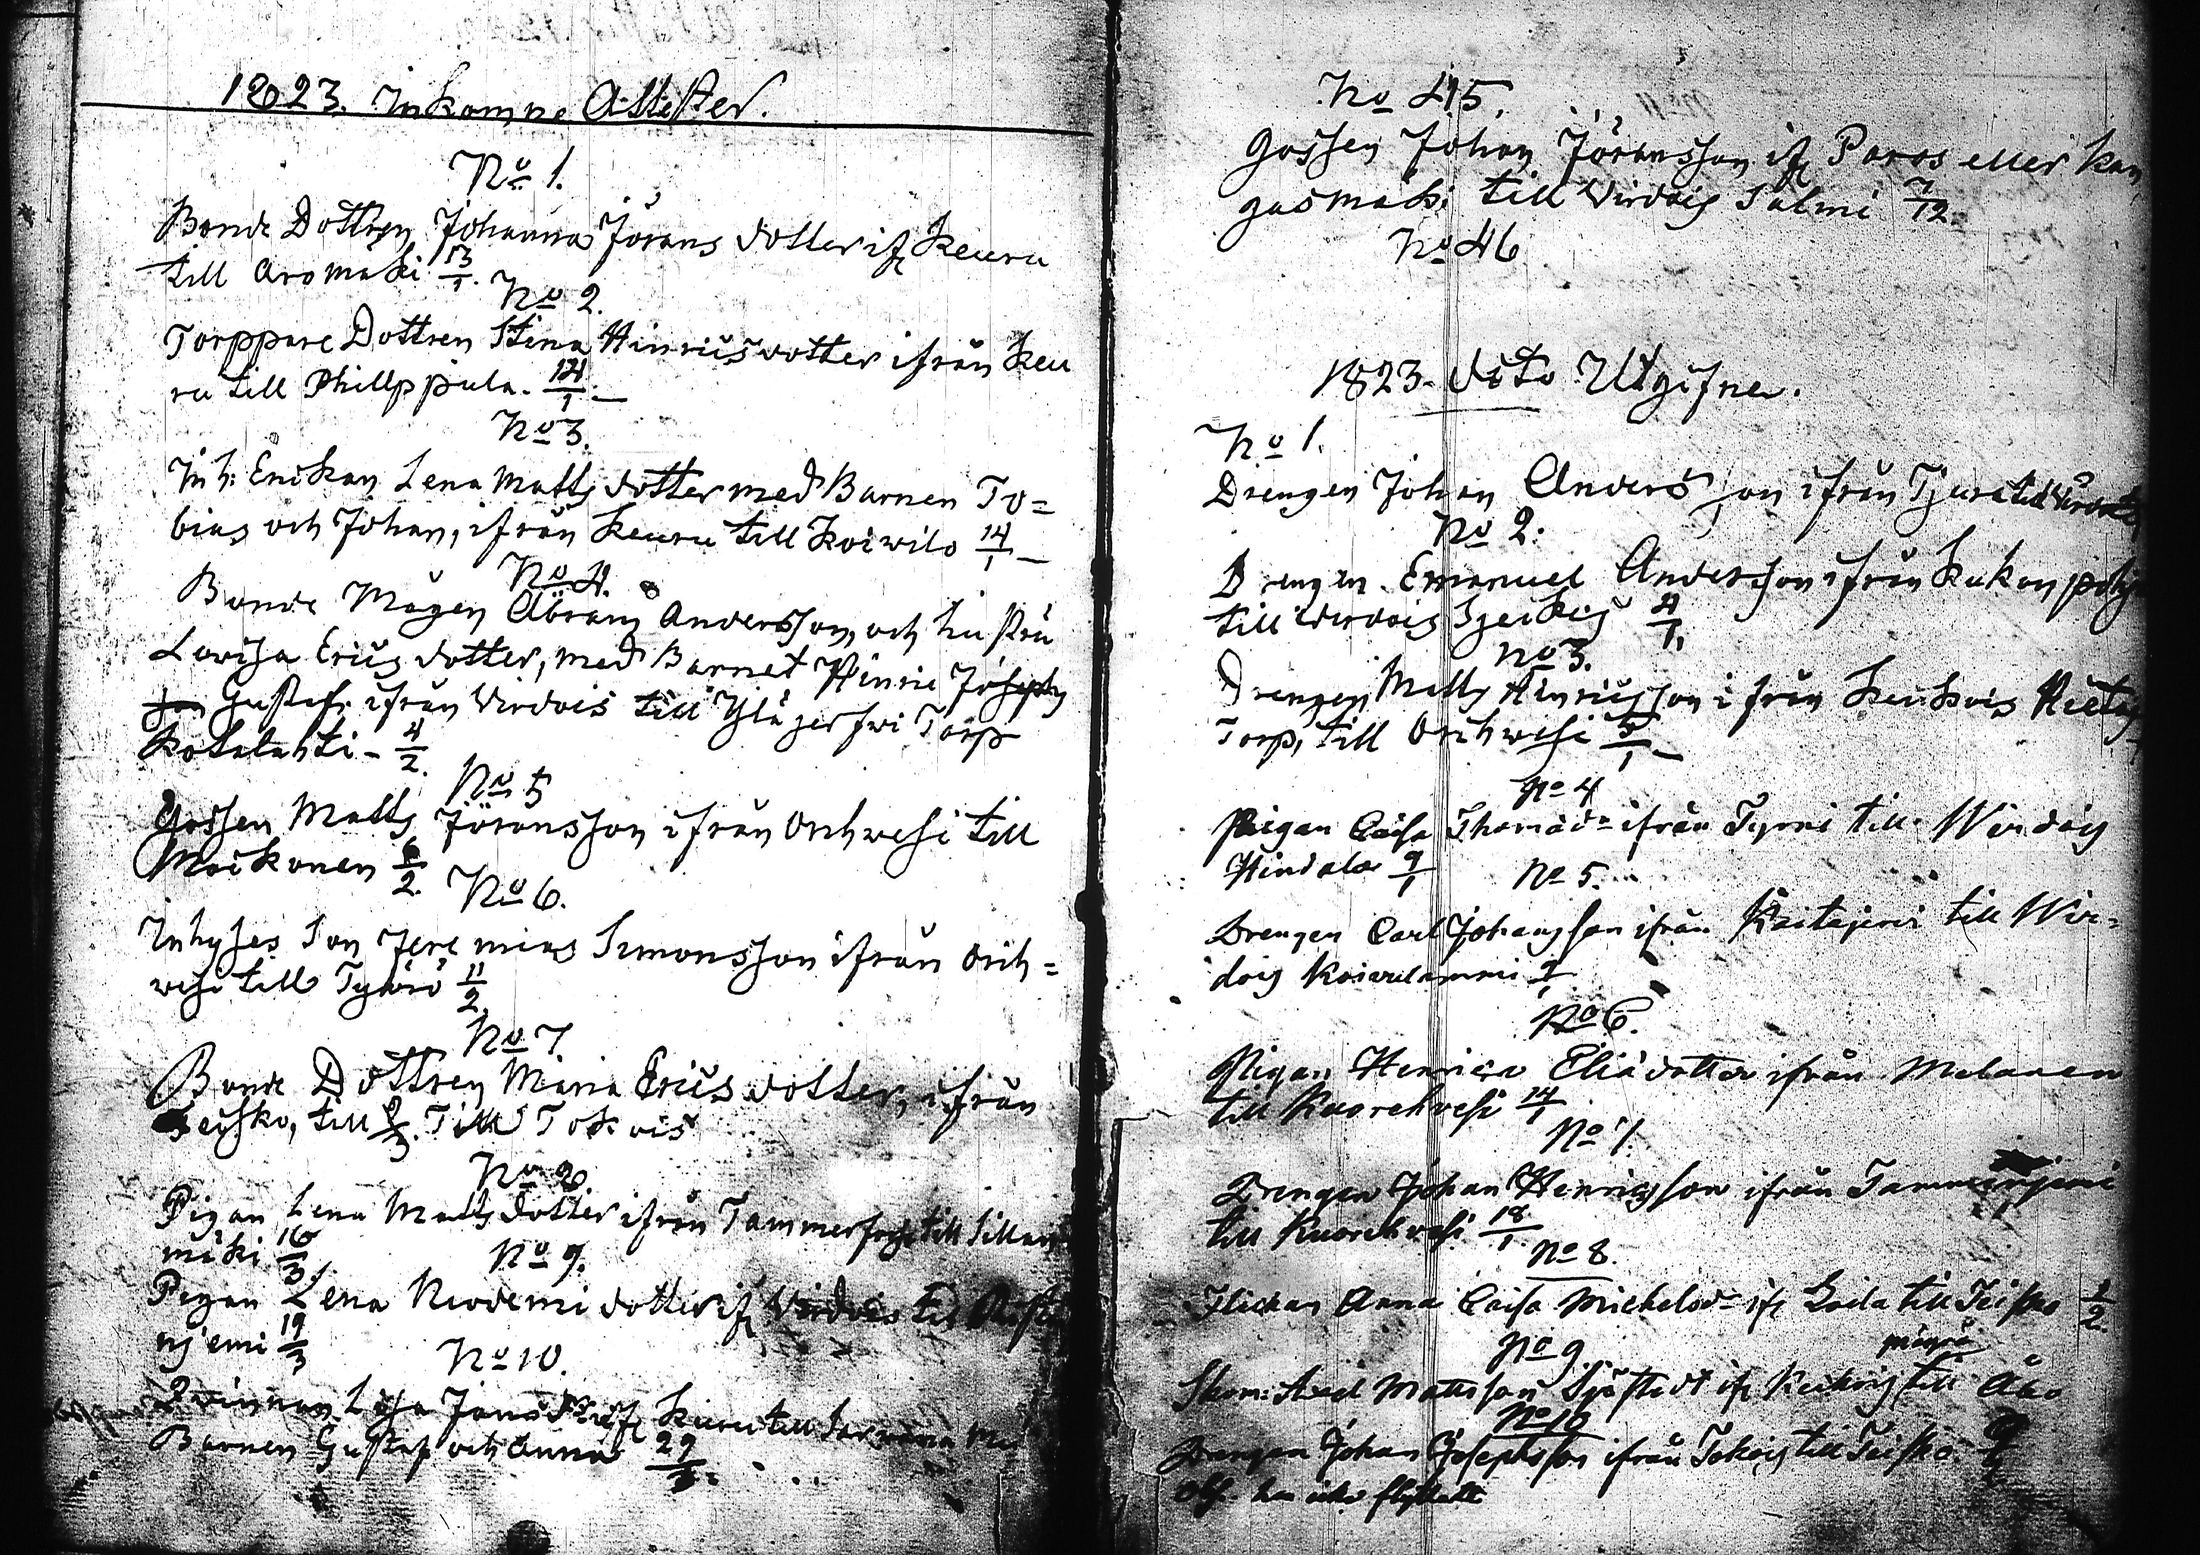 1823. Inkomne Attester.
No 1.
Bonde Dottren Johanna Jörans dotter if. Keuru
till Aromäki 13/1.
No 2.
Torppare Dottren Stina Hinricsdotter ifrån Keu
ru till Philppula. 14/1.
No 3.
Inh: Enckan Lena Matts dotter med Barnen To=
bias och Johan, ifrån Keuru till Koiwilo 14/1
No 4.
Bonde Mågen Abram Andersson, och hustru
Lovisa Erics dotter, med Barnet Hinric Josephs
Gustaf. ifrån Virdois till Torp
Kotalahti - 4/2.
No 5
Gossen Matts Jöransson ifrån Orihwesi till
Moikonen 6/2.
No 6.
Inhyses Son Jeremias Simonsson ifrån Orih=
wesi till 11/2
No 7
Bonde Dottren Maria Erics dotter, ifrån
Teisko, till Till Tokois
No 8.
Pigan Lena Matts Dotter ifrån Tammerfors till
mäki 16/3.
No 9.
Pigan Lena Nicodemi dotter if. Virdois till
njemi 19/3
No 10.
Qwinnan Lisa if. Keuru till
Barnen Gustaf och Anna 29/3.
No 45.
Gossen Johan Jöransson if. Poros eller Kan
gasmäki till Virdois Salmi 7/12
No 46
1823. dito Utgifne.
No 1.
Drengen Johan Andersson ifrån till
No 2.
Drengen Emanuel Andersson ifrån Kukon pohja
till Virdois 4/1.
No 3.
Drengen Matts Hinricsson ifrån Keickois
Torp, till Orihwesi 5/1
No 4
Pigan Caisa Thomasdr ifrån Tyrni till Wirdois
Hindala 9/1
No 5.
Drengen Carl Johansson ifrån till Wir=
dois Koivulammi
No 6.
Pigan Henrica Eliædotter ifrån Melanen
till Kuorehvesi 14/1
No 7.
Drengen Johan Henricsson ifrån
till Kuorehvesi 18/1.
No 8.
Flickan Anna Caisa Michelsdr if. till Teisko 1/2.
No 9.
Skom: Axel Mattsson Sjöstedt if. till Åbo
No 10
Drengen Johan Josephsson ifrån Tokois till Teisko
Obs. har icke flyttatt